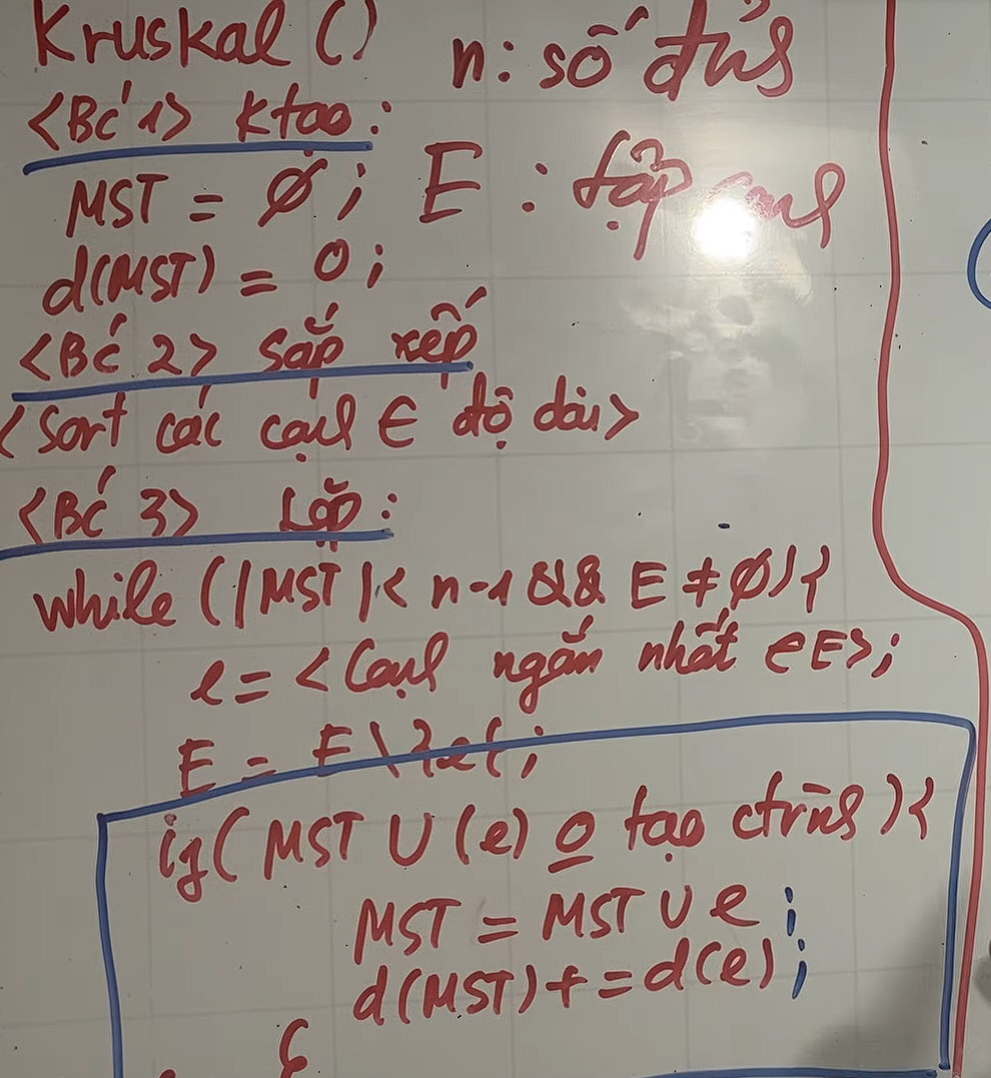 Kruskal () n: số đỉnh
<Bć 1> ktạo:
MST = ∅; E : tập cạnh
d(MST) = 0;
<Bć 2> sắp xếp
<Sort các cạnh ∈ độ dài>
<Bć 3> Lặp:
while (|MST|< n-1 && E ≠ ∅){
e = <Cạnh ngắn nhất ∈ E>;
E = E \ {e};
if( MST ∪ (e) o tạo ctrình ){
MST = MST ∪ e ;
d(MST) += d(e) ;
}